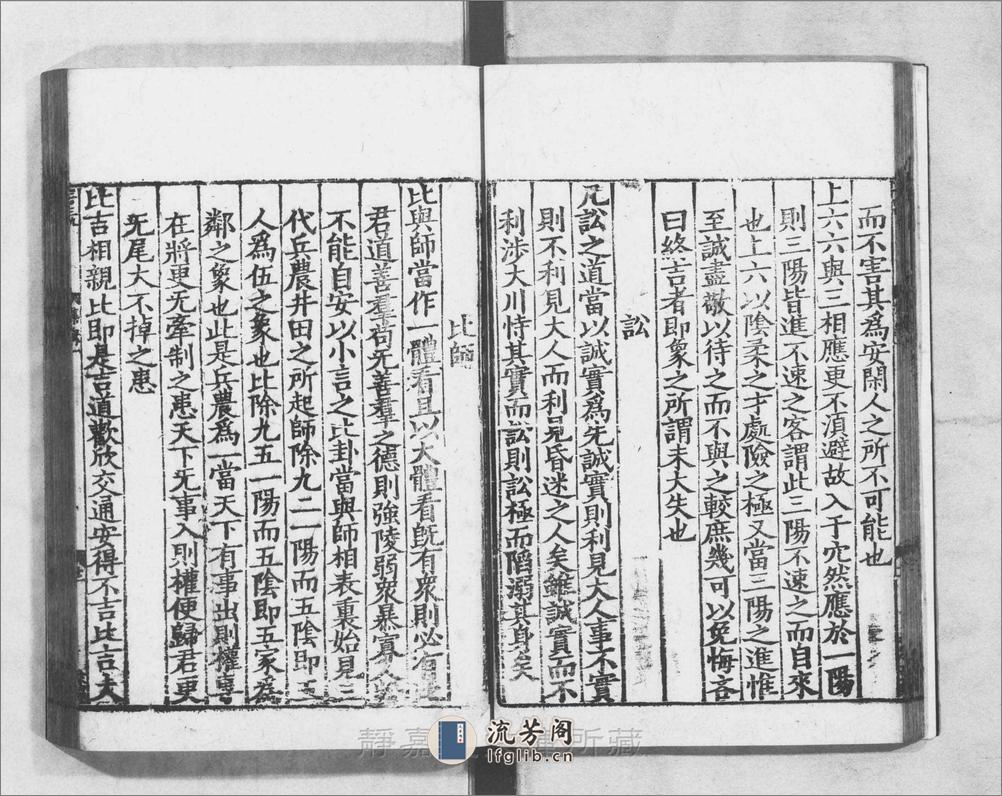 而不害其為安閑人之所不可能也
上六六與三相應更不湏避故入于穴然應於一陽
則三陽皆進不速之客謂此三陽不速之而自來
也上六以陰柔之才處險之極又當三陽之進惟
至誠盡敬以待之而不與之較庶幾可以免悔吝
曰終吉者即象之所謂未大失也
訟
凡訟之道當以誠實為先誠實則利見大人事不實
則不利見大人而利見昏迷之人矣雖誠實而不
利涉大川恃其實而訟則訟極而陷溺其身矣
比師
比與師當作一體看且以大體看旣有衆則必有
君道善羣苟无善羣之德則強陵弱衆暴寡
不能自安以小言之比卦當與師相表裏始見三
代兵農井田之所起師除九二一陽而五陰即五
人為伍之象也比除九五一陽而五陰即五家為
鄰之象也此是兵農為一當天下有事出則權專
在將更无牽制之患天下无事入則權使歸君更
无尾大不掉之患
比吉相親比即是吉道歡欣交通安得不吉比吉大
静嘉 所藏
流芳阁
lfglib.cn